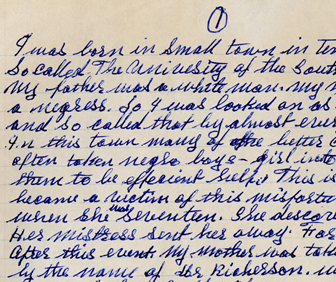 ①
I was born in small town in te
So called, The Univesity of the Sout
My father was a white man. my m
a negress. So I was looked on as
and so called that by almost ever
In this town many of the better c
often taken negro boys - girl into
them to be effecient help. This i
became a victim of this misfortu
when she was seventien. She descove
Her mistress sent her away. For
After this event my mother was tak
by the name of Richerson. w